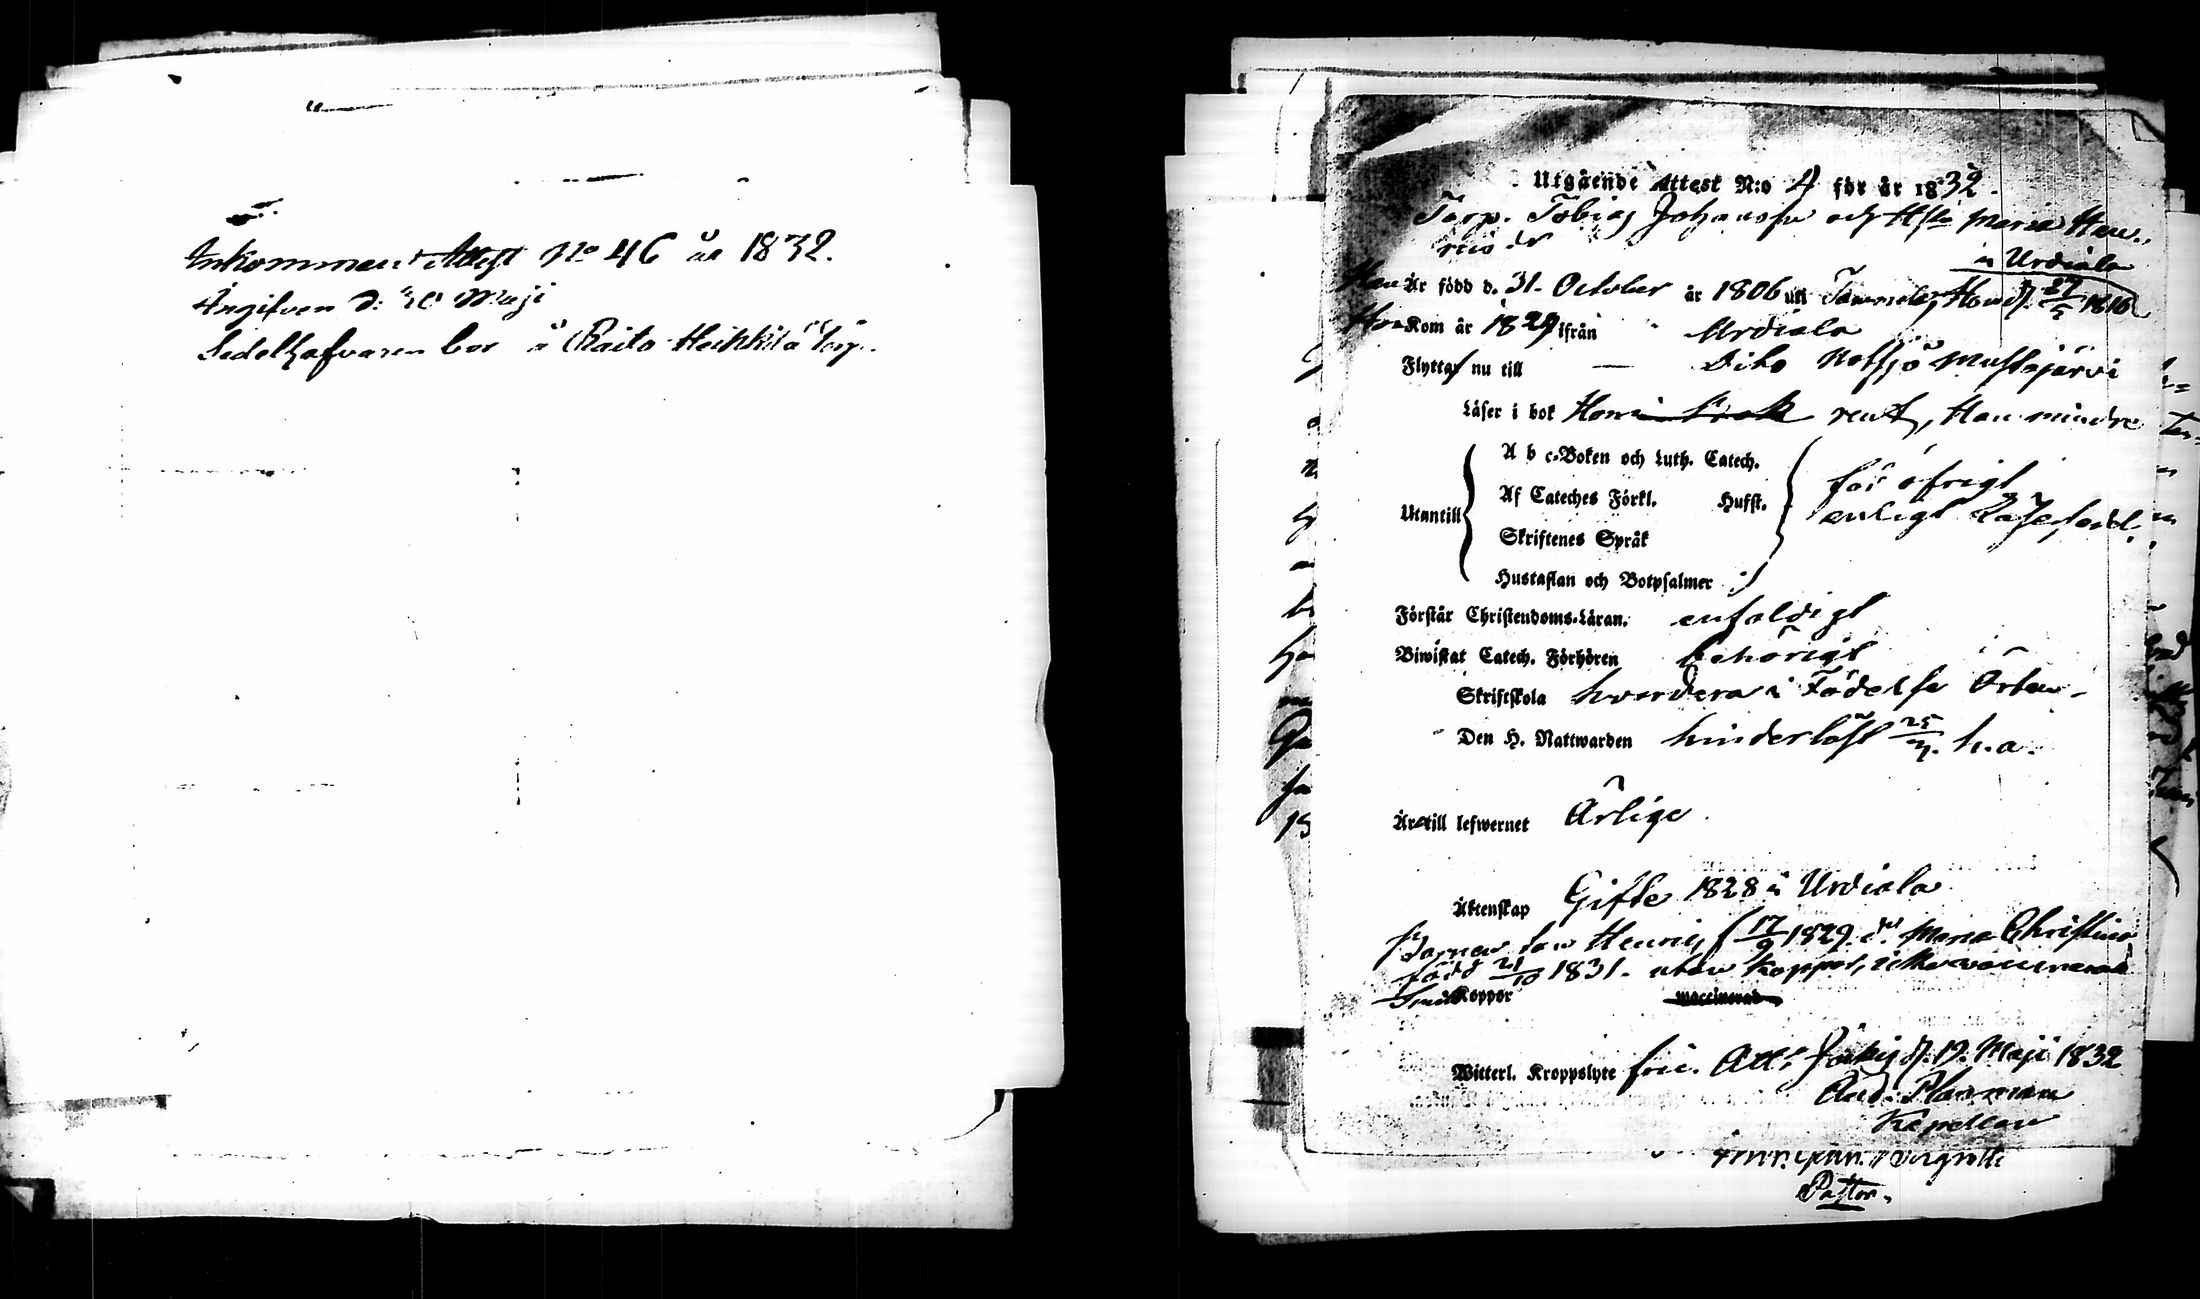 Inkommand Attest No 46 år 1832.
Angifven d: 30 Maji
Sedelhafvaren bor å Raito Heikkilä torp.
Utgående Attest N:o 4 för år 1832.
Torp. Tobias Johansson och Hstr Maria Hen-
ricsdr
i Urdiala
Han Är född d. 31. October år 1806 uti Tammela, Hon d. 27/5 1810
Hon Kom år 1829 ifrån Urdiala
Flyttar nu till — Dito Notsjö Mustajärvi
Läser i bok Hon rent, Han mindre
Utantill
A b c-Boken och Luth. Catech.
Af Cateches Förkl. Hufst.
Skriftenes Språk
Hustaflan och Botpsalmer
för öfrigt
enligt
Förstår Christendoms-Läran. enfaldigt
Biwistat Catech. Förhören behörigt
Skriftskola hvardera i Födelse Orten
Den H. Nattwarden hinderlöst 25/3. h.a.
Äro till lefwernet Ärlige
Äktenskap Gifte 1828 i Urdiala
Barnen son Henric, f 17/9 1829. dr Maria Christina
född 21/10 1831. utan koppor, icke vaccinerade
Små Koppor waccinerad
Witterl. Kroppslyte frie. Att. Jockis d. 19. Maji 1832
And. Planman
Kapellan
Pastor.